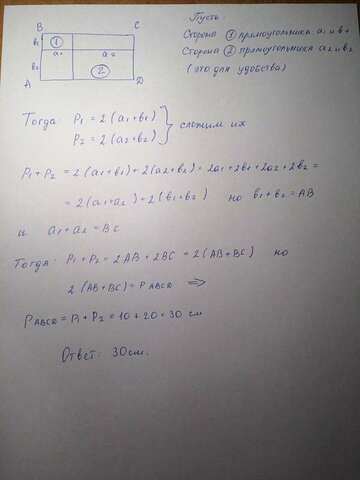 B C
b₁ ① a₁ a₂
b₂ ②
A D
Пусть:
Сторона ① прямоугольника a₁ и b₁
Сторона ② прямоугольника a₂ и b₂
(это для удобства)
Тогда: P₁ = 2(a₁+b₁)
P₂ = 2(a₂+b₂) } сложим их
P₁+P₂ = 2(a₁+b₁)+2(a₂+b₂) = 2a₁+2b₁+2a₂+2b₂ =
= 2(a₁+a₂)+2(b₁+b₂) но b₁+b₂=AB
и a₁+a₂=BC
Тогда: P₁+P₂ = 2AB+2BC = 2(AB+BC) но
2(AB+BC)=P ABCD ⟹
P ABCD = P₁+P₂ = 10+20=30 см
Ответ: 30см.